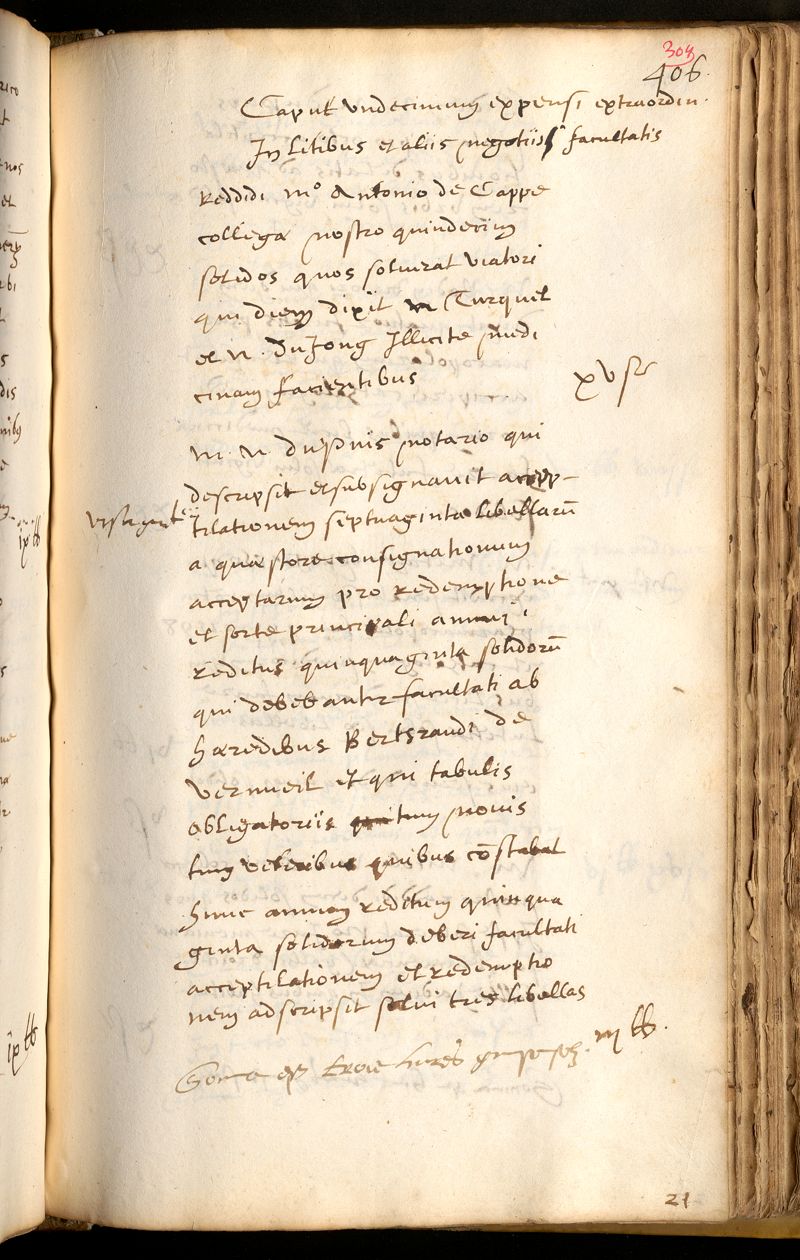 308
406.
Caput vndecimum expensi extraordin.
In litibus et aliis negotiis facultatis
Reddidi mo Antonio de Cappe
collegæ nostro quindecim
solidos quos soluerat viatori
qui diem dixit m Turquet
et N. DuJong Illicite medi
cinam facientibus
xv s
M. N dupuis notario qui
descripsit et subsignauit accep-
tilationem septuaginta libellarū
a quæstore consignationum
acceptarum pro Redemptione
et sorte principali annui
Reditus quinquaginta solidorū
qui debebantur facultati ab
hæredibus Bertrandi de
vernueil et qui tabulis
obligatoriis tum nouis
tum veteribus quibus cōstabat
hunc annum reditum quinqua
ginta solidorum deberi facultati
acceptilationem et redemptio
nem adscripsit solui tres libellas
iij lb.
So
21
ix lb
ix lb